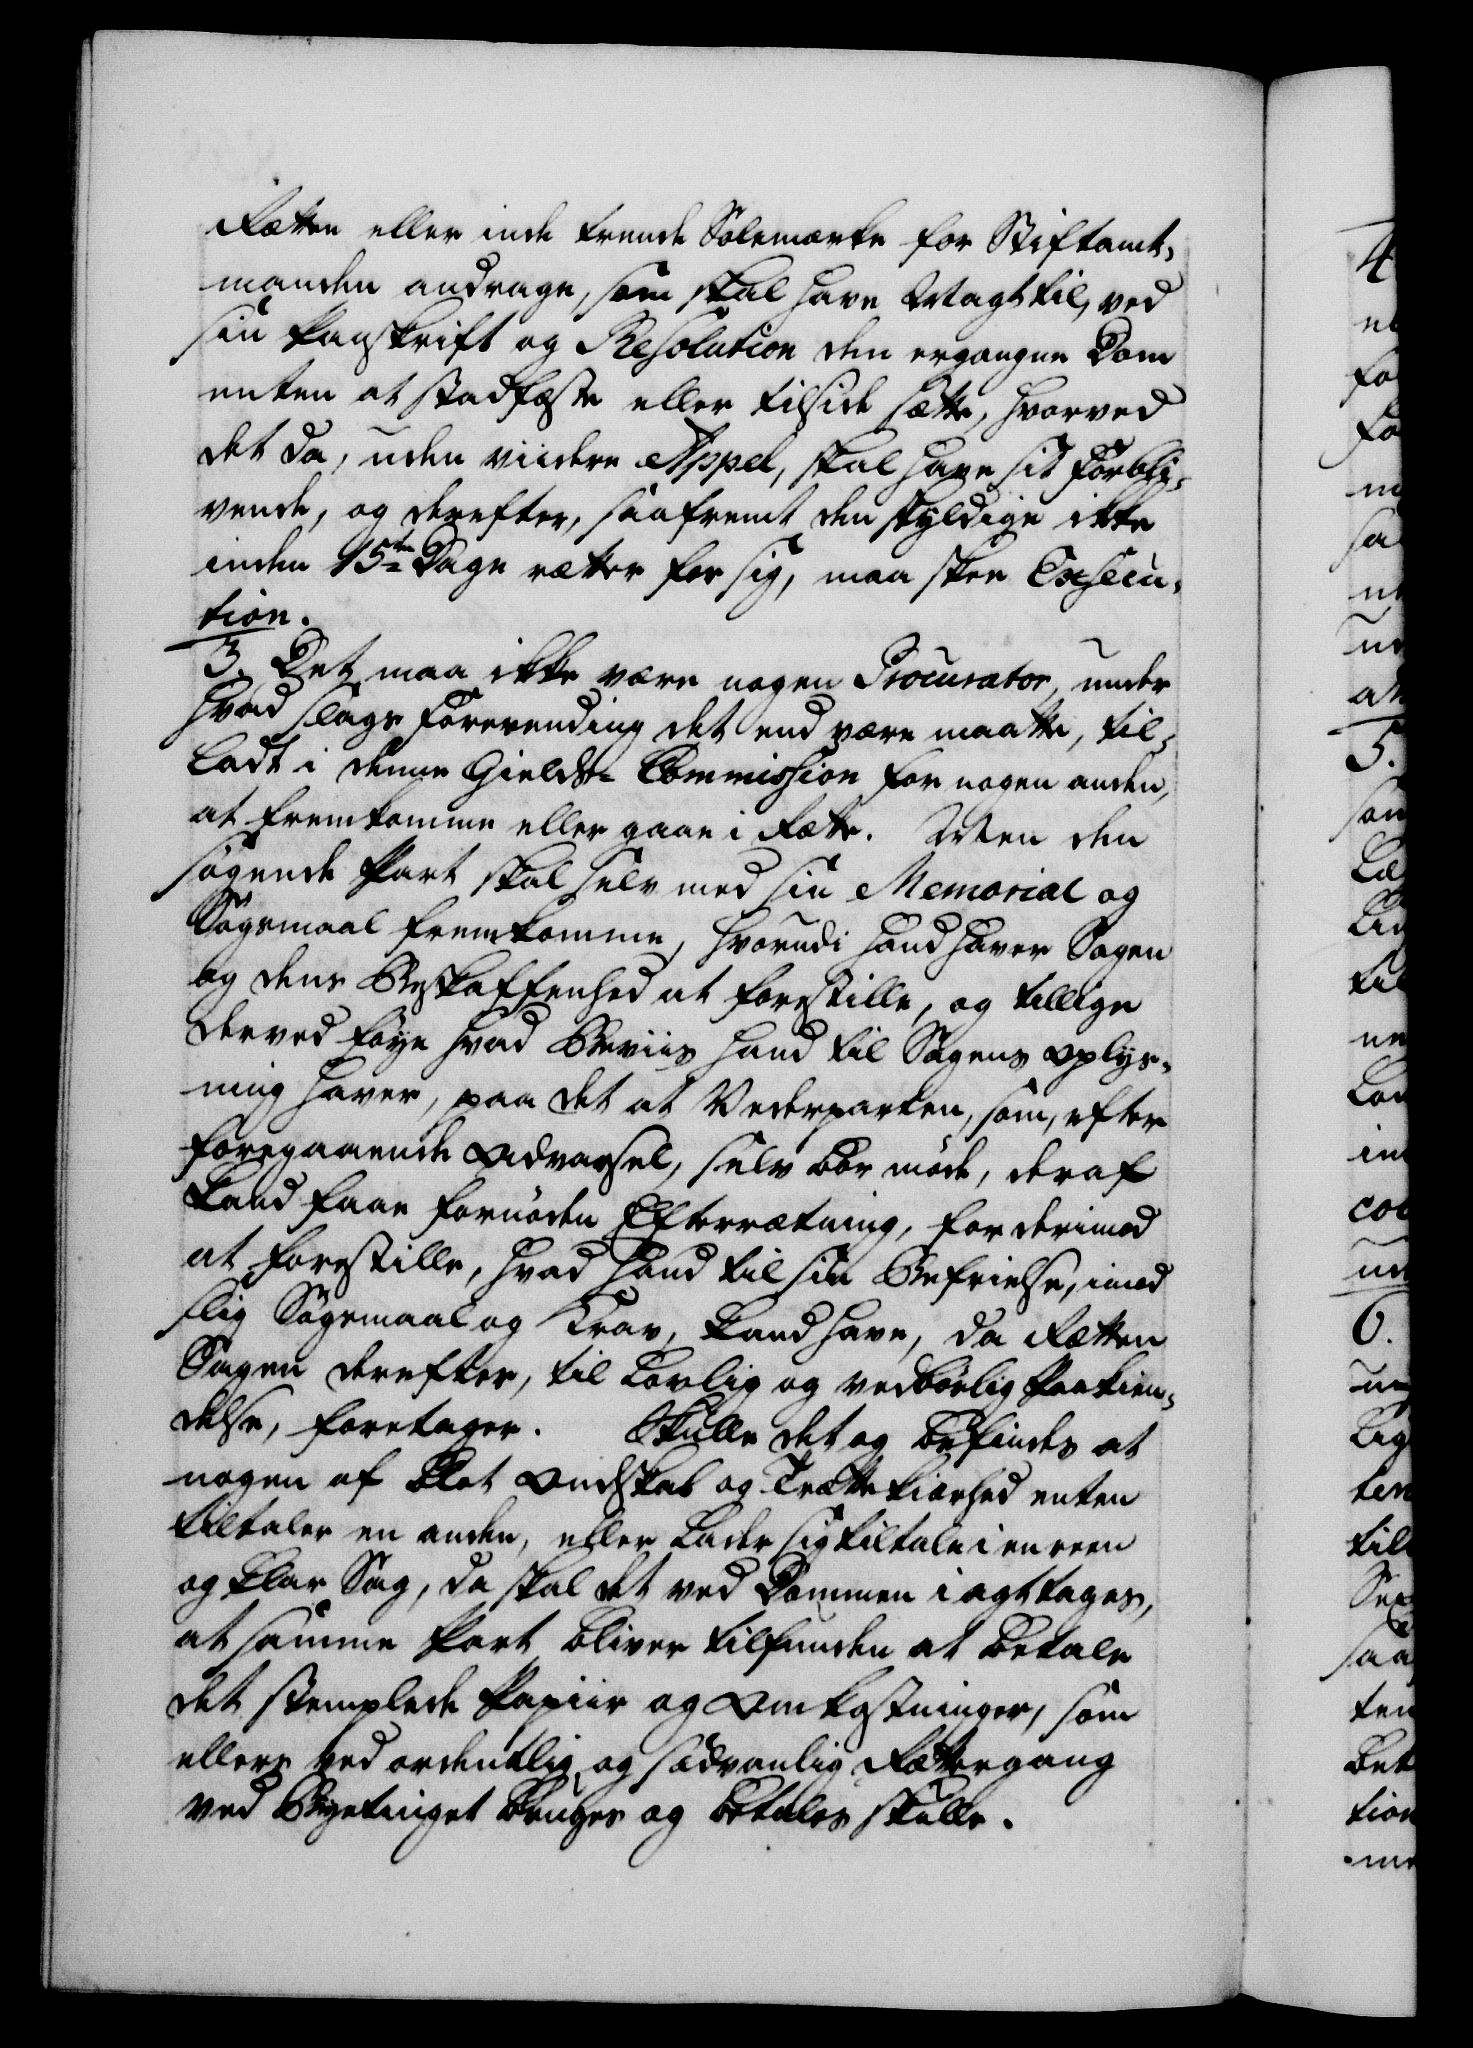 Rætten eller inde trende Solemærke for Stiftamt-
manden andrage, som skal have Magt til, ved
sin Paaskrift og Resolution den ergangne Dom
enten at stadfæste eller tilside sætte, hvorved
det da, uden viidere Appel, skal have sit Forbli-
vende, og derefter, saafremt den skyldige ikke
inden 15ten Dage retter for sig, maa skee Execu-
tion.
3. Det maa ikke være nogen Procurator, under
hvad slags Forevending det end være maatte, til-
ladt i denne Gields- Commission for nogen anden,
at fremkomme eller gaae i Rette. Men den
søgende Part skal selv med sin Memorial og
Søgsmaal fremkomme, hvorudi hand haver Sagen
og dens Beskaffenhed at forestille, og tillige
derved føye hvad Beviis hand til Sagens oplys-
ning haver, paa det at Vederparten, som, efter
foregaaende Advarsel, selv bør møde, deraf
kand faae fornøden Efterrætning, for derimod
at forestille, hvad hand til sin Befrielse, imod
slig Søgsmaal og Krav, kand have, da Rætten
Sagen derefter, til Lovlig og vedbørlig Paakien-
delse, foretager. Skulle det og befindes at
nogen af blot Ondskab og Trættekiærhed enten
tiltaler en anden, eller lader sig tiltale i en reen
og klar Sag, da skal det ved Dommen i agttages,
at samme Part bliver tilfunden at betale
det stemplede Papiir og Omkostninger, som
ellers ved ordentlig og sædvanlig Rættergang
ved Byetinget bruges og betales skulle.